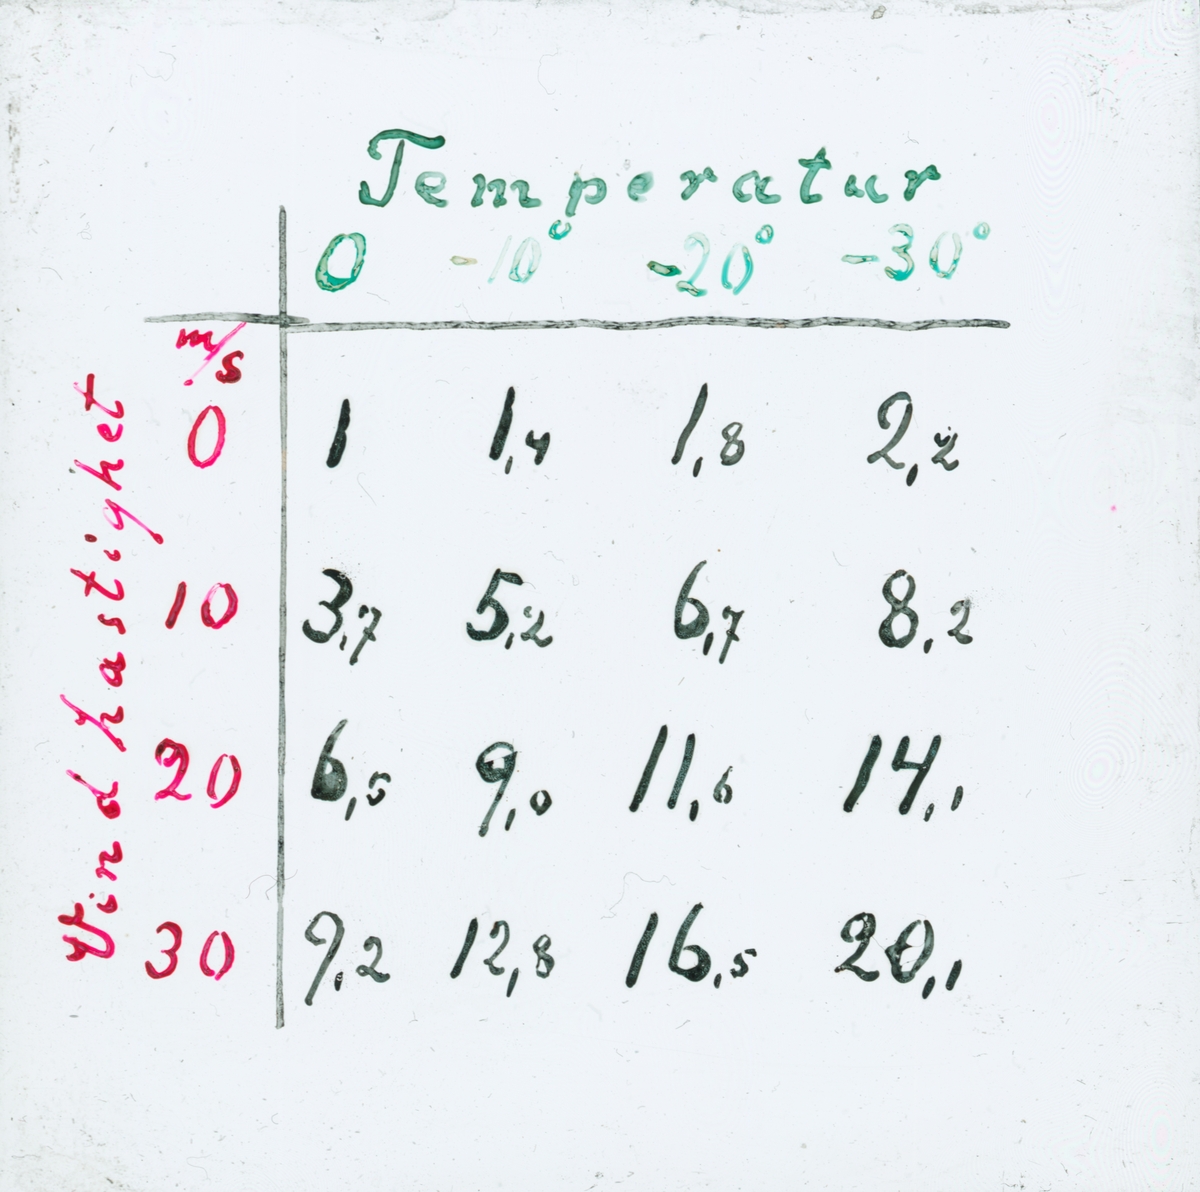 Temperatur
0 -10° -20° -30°
m/s
Vindhastighet
0 1 1,4 1,8 2,2
10 3,7 5,2 6,7 8,2
20 6,5 9,0 11,6 14,1
30 9,2 12,8 16,5 20,1